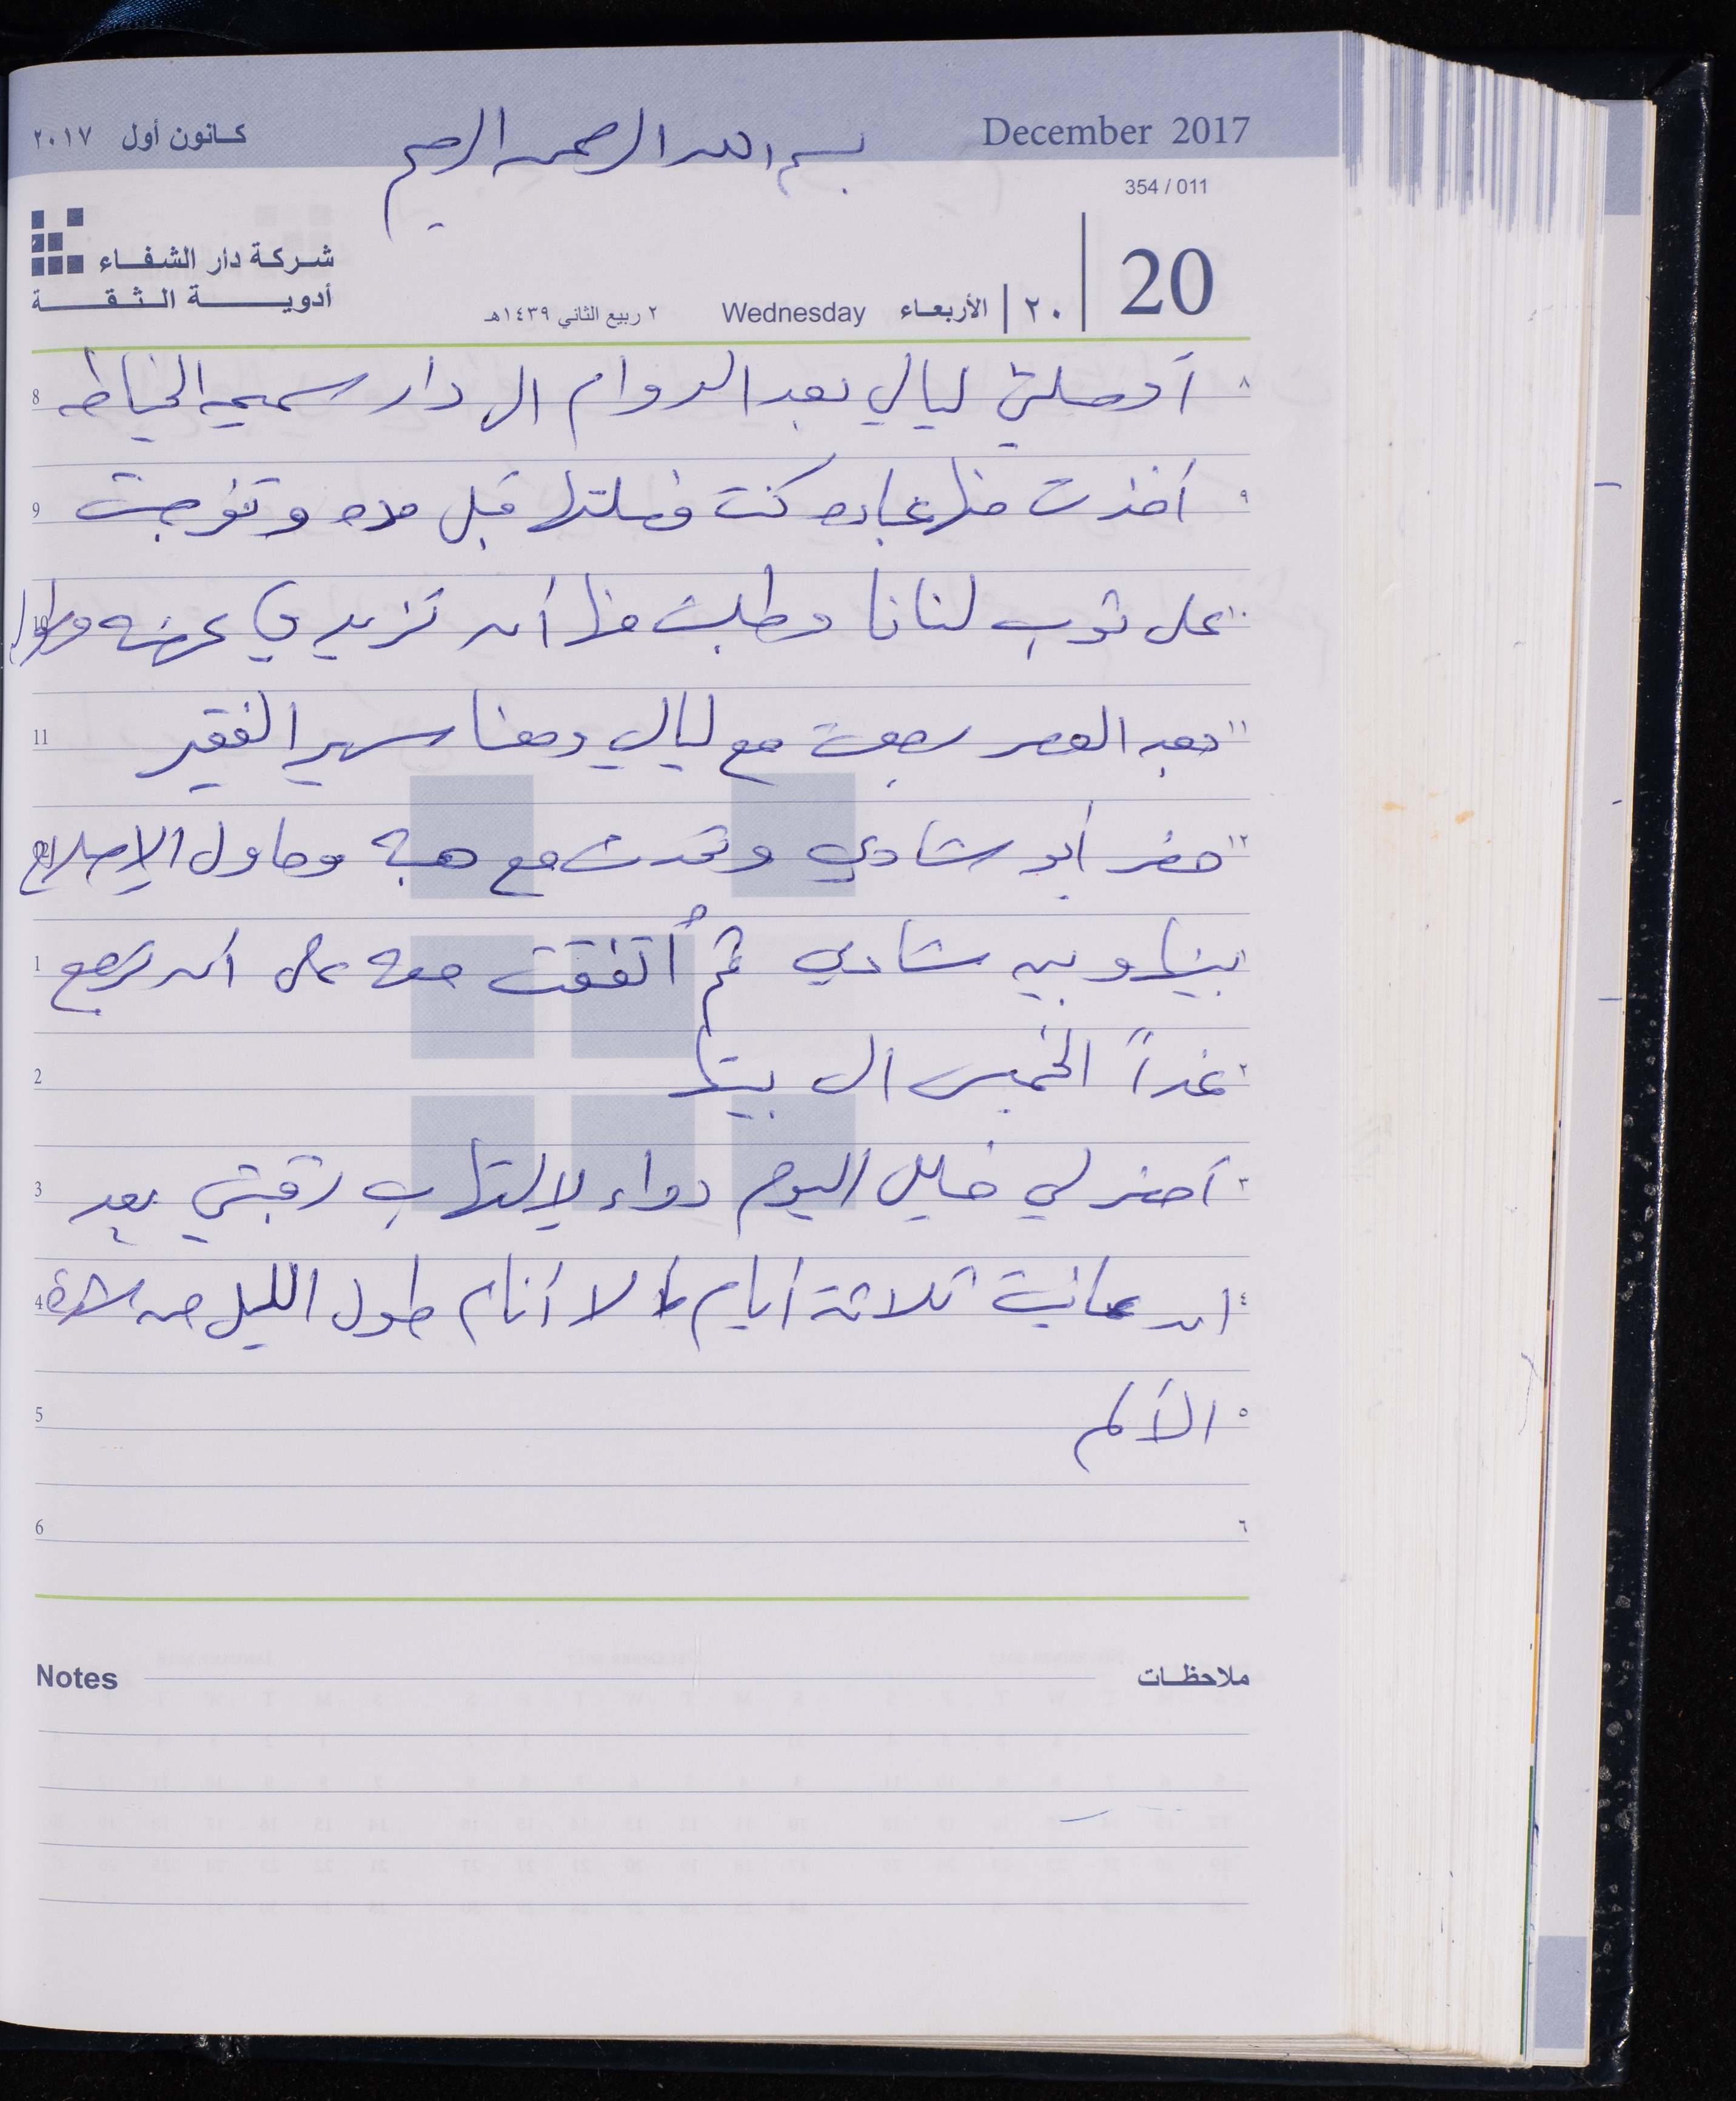 كانون أول ٢٠١٧
December 2017
بسم الله الرحمن الرحيم
354 / 011
شركة دار الشفاء
أدوية الثقة
20
٢٠
الأربعاء
Wednesday
٢ ربيع الثاني ١٤٣٩هـ
٨ أوصلني ليالي بعد الدوام الى دار سميحه الخياطه 8
٩ أخذت منها عباده كنت فصلتها قبل مده وتفرجت 9
١٠ على ثوب لنانا وطلبت منها أن تزيدي عرضه وطوله 10
١١ وبعد العصر رجعت مع ليالي ومعنا سهير الفقير 11
١٢ حضر أبو شادي وتحدث مع هبة وحاول الإصلاح
بينها وبين شادي ثم أتفقت معه على أن ترجع 1
٢ غداً الخميس الى بيتها 2
٣ أحضر لي خليل اليوم دواء لإلتهاب رقبتي بعد 3
٤ ان عانيت ثلاثة أيام لا أنام طول الليل من شدة 4
٥ الألم 5
٦ 6
ملاحظات
Notes